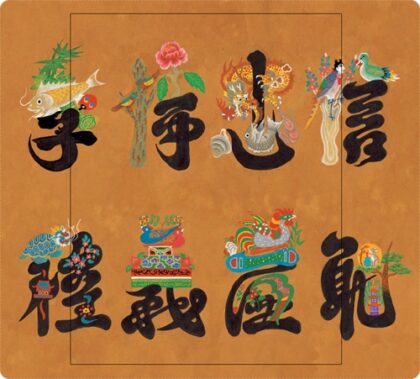 孝悌忠信
禮義廉恥